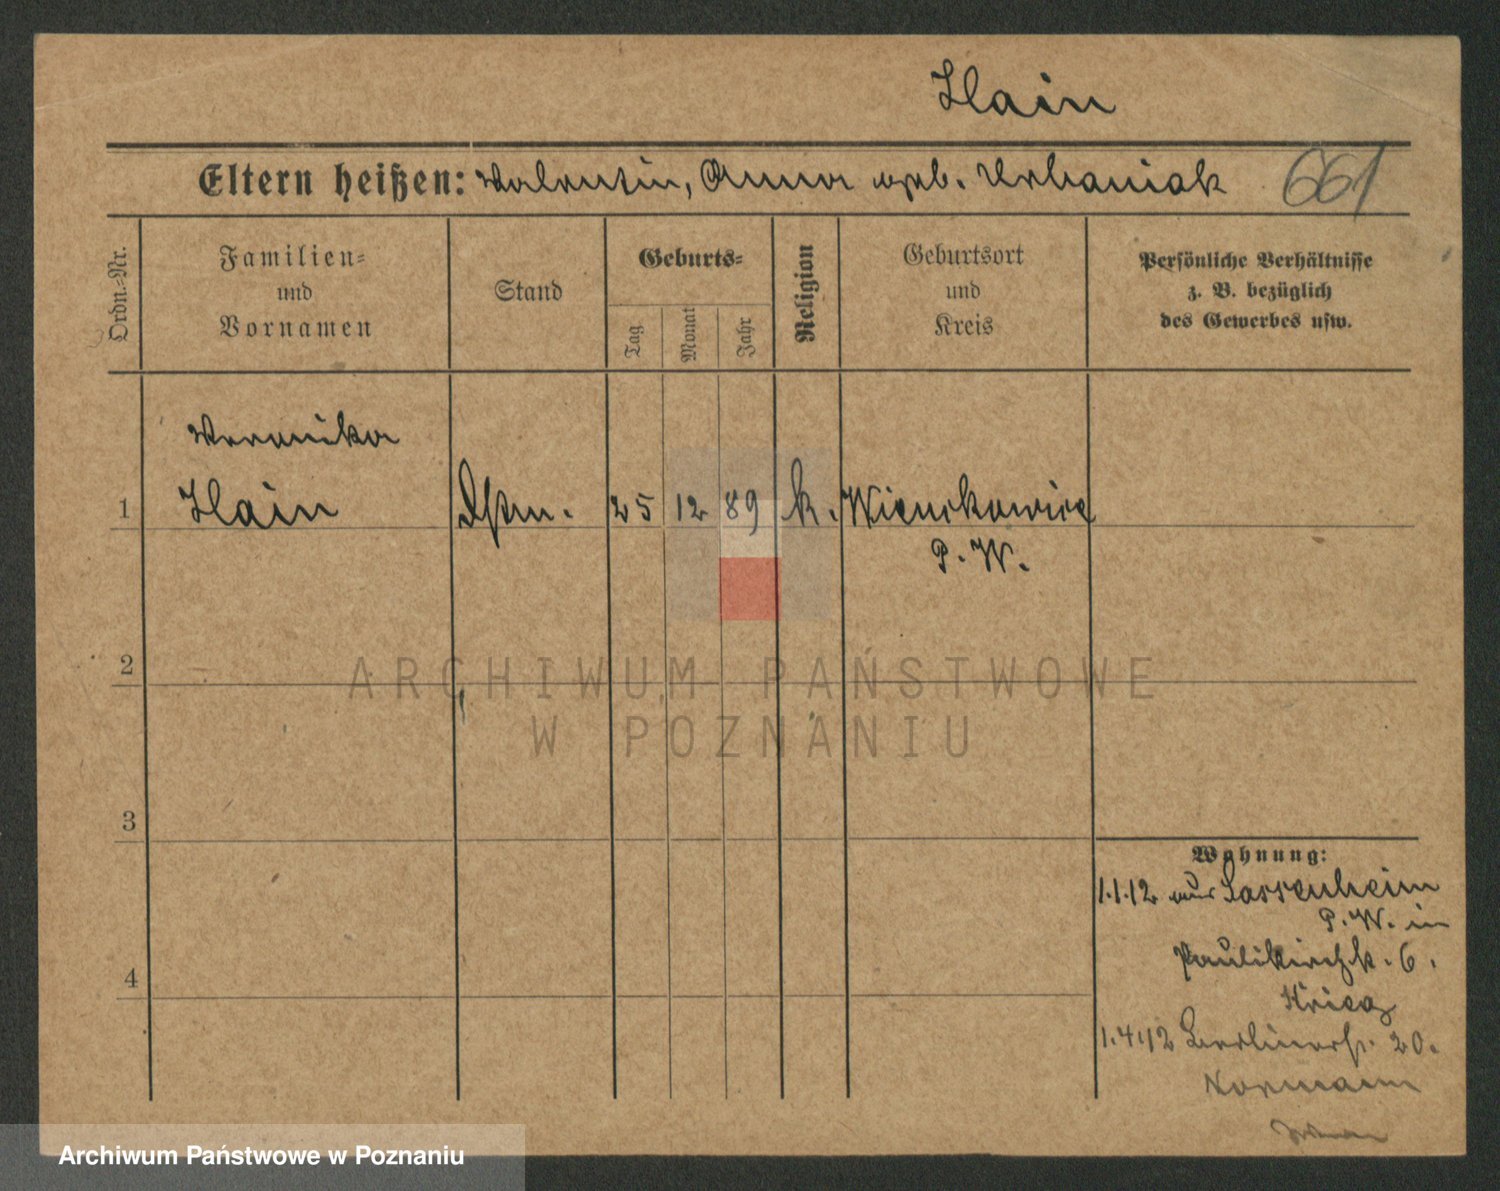 Hain
Eltern heißen: Valentin, Anna geb. Urbaniak 661
Ordn.-Nr.
Familien-
und
Vornamen
Stand
Geburts-
Tag
Monat
Jahr
Religion
Geburtsort
und
Kreis
Persönliche Verhältnisse
z. B. bezüglich
des Gewerbes usw.
Veronika
1 Hain Dstm. 25 12 89 k. Wienckowice
P. W.
2
ARCHIWUM PAŃSTWOWE
W POZNANIU
3
Wohnung:
1.1.12 aus Sassenheim
P. W. in
Paulikirchstr. 6.
4
1.4.12 Berlinerstr. 20.
Archiwum Państwowe w Poznaniu